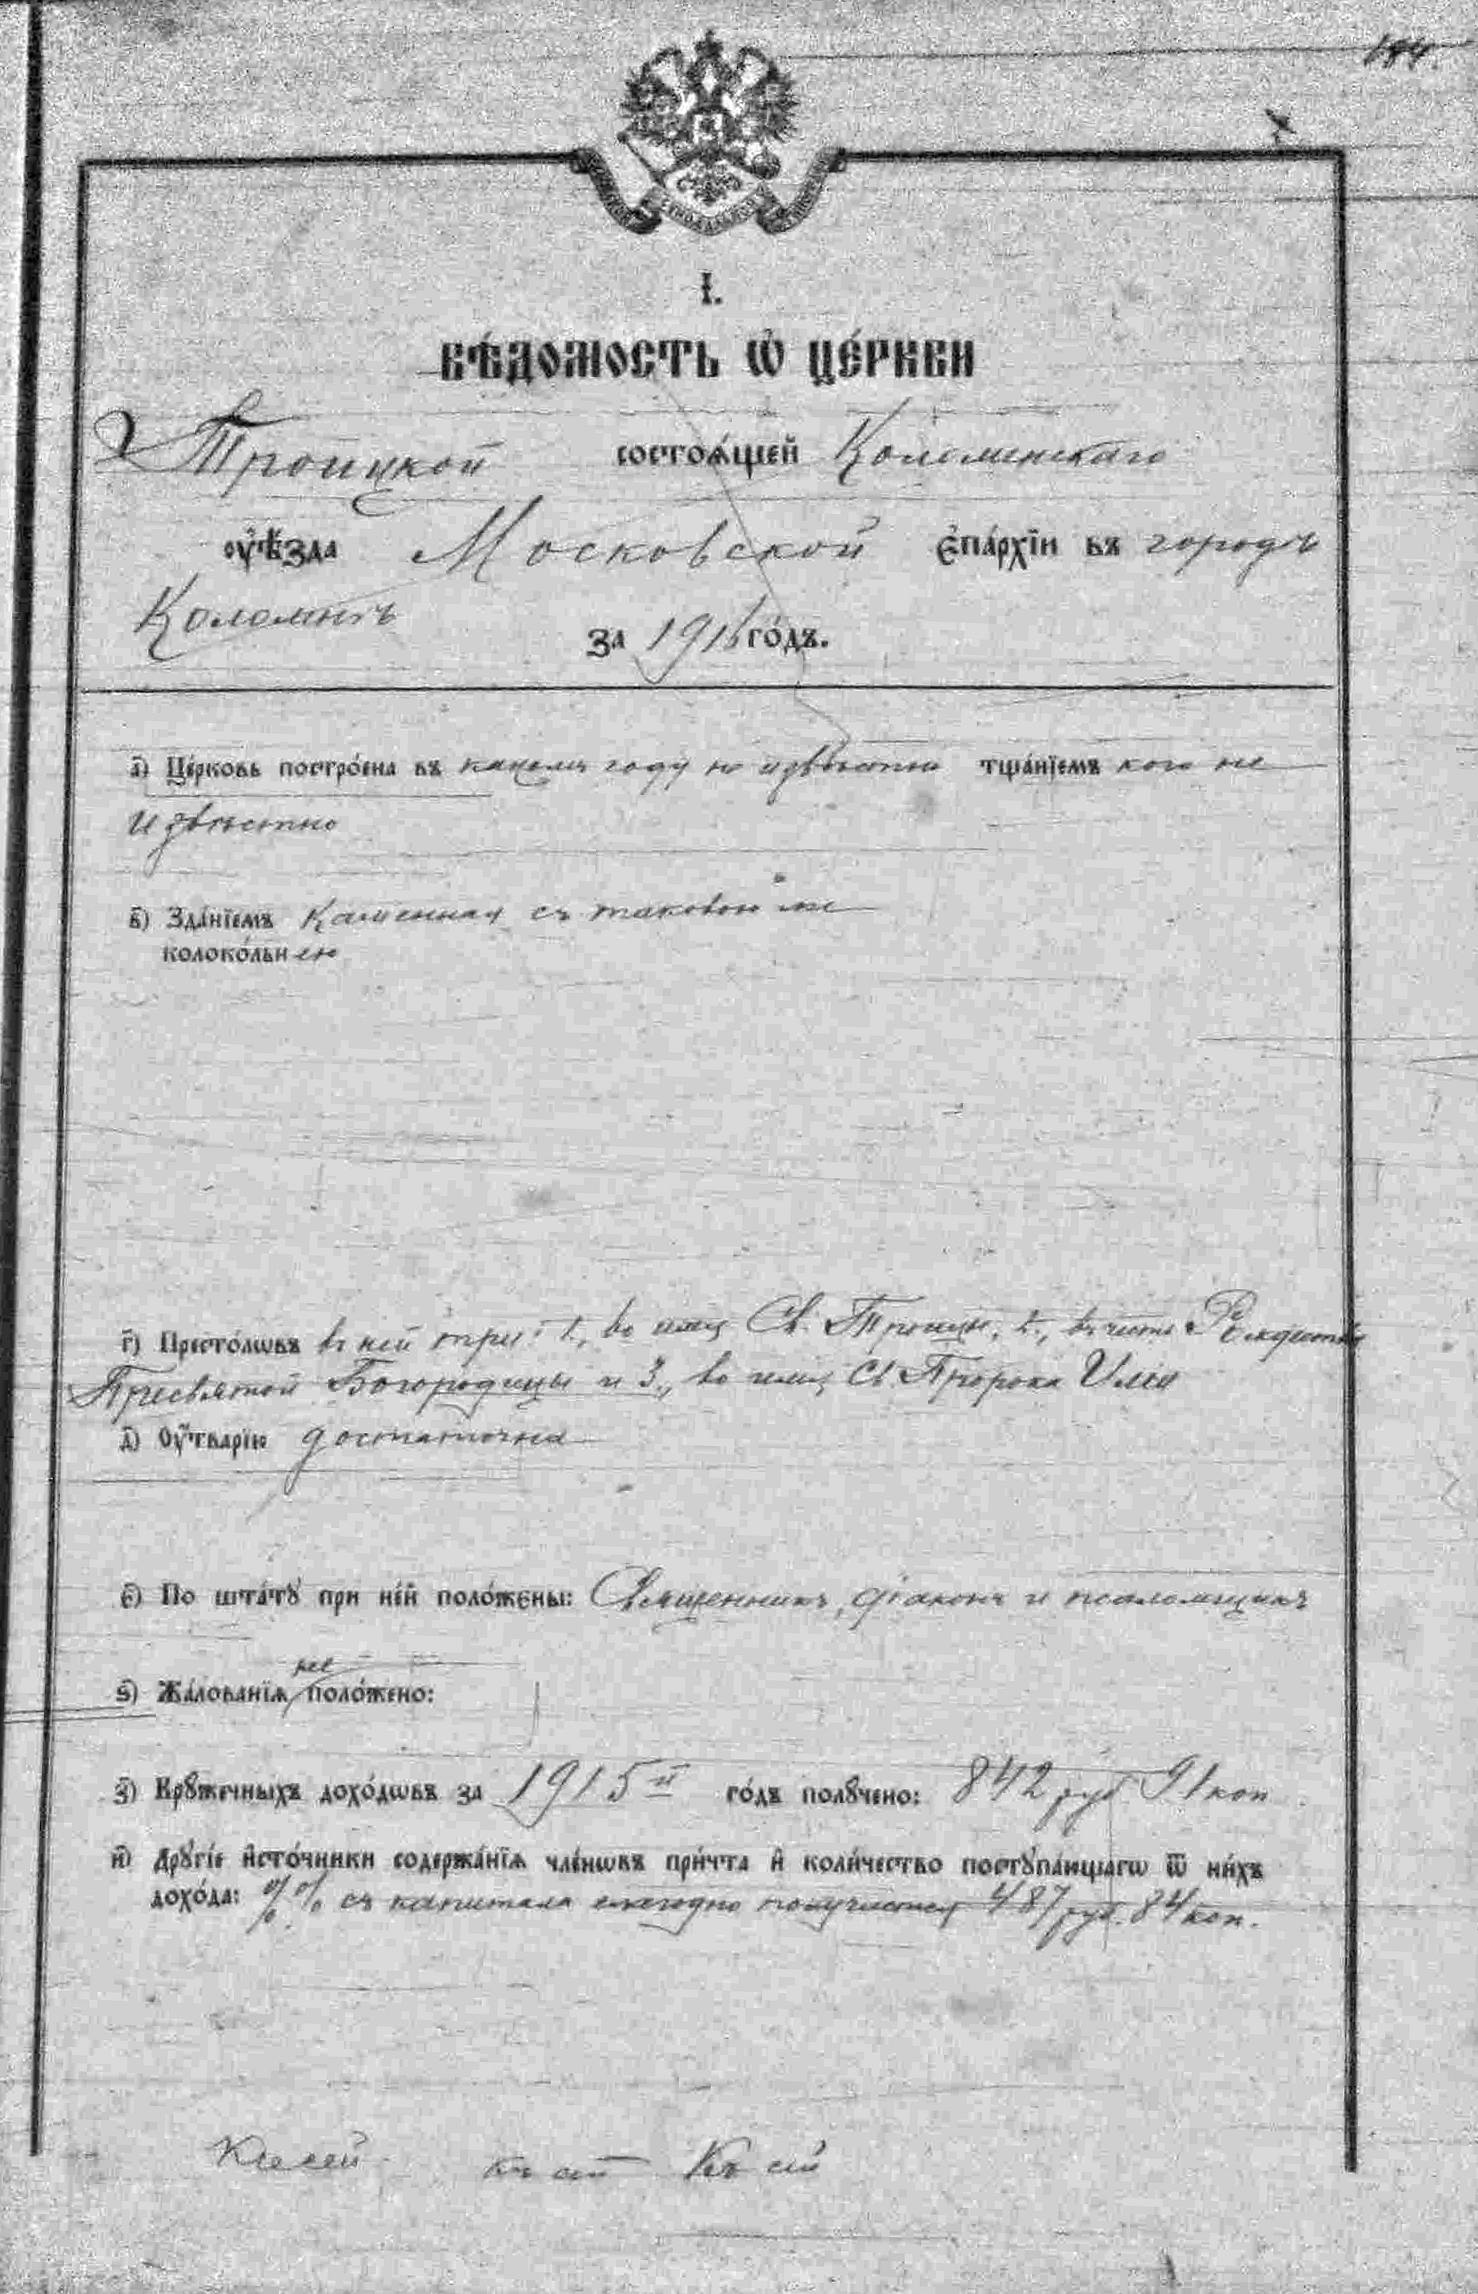 184.
I.
Вѣ́домость ѡ҆ це́ркви
Троицкой состоѧ́щей Коломенскаго
ᲂу҆ѣ́зда Московской є҆па́рхїи въ городѣ
Коломнѣ
за 1915 го́дъ.
а҃) Це́рковь постро́ена въ какомъ году не извѣстно тща́нїемъ кого не
извѣстно
в҃) Зда́нїемъ каменная съ таковою же
колоко́льнею
г҃) Престо́лѡвъ въ ней три: 1., во имя Св. Троицы, 2., въ честь Рождества
Пресвятой Богородицы и 3., во имя Св. Пророка Иліи
д҃) Оу҆́тварїю достаточна
є҃) По шта́тꙋ при не́й поло́жены: Священникъ, діаконъ и псаломщикъ
ѕ҃) Жа́лованїѧ не поло́жено:
з҃) Крꙋжечныхъ дохо́дѡвъ за 1915й го́дъ полꙋчено: 842 руб 91 коп
и҃) Дрꙋгі́е и҆сто́чники содержа́нїѧ чле́нѡвъ при́чта и҆ коли́чество постꙋпа́ющагѡ ѿ ни́хъ
дохо́да: %% съ капитала ежегодно получается 487 руб. 84 коп.
Къ сей